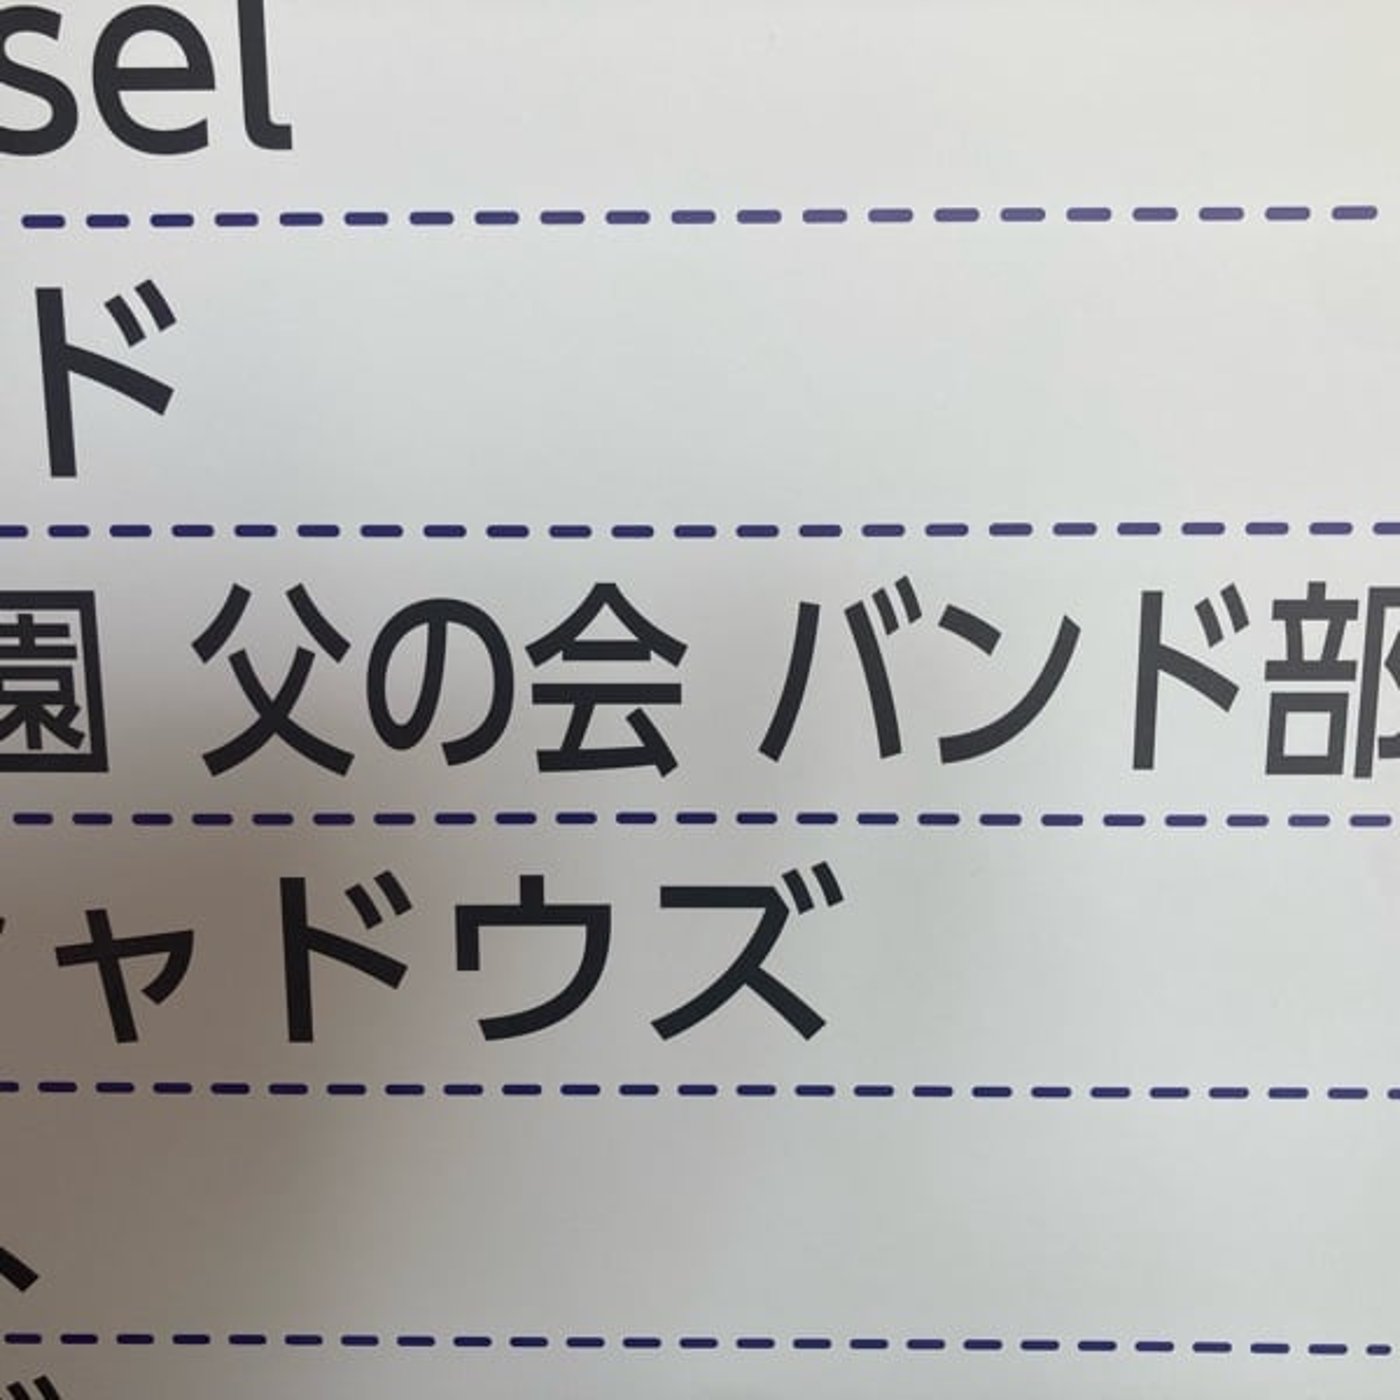 sel
ド
園 父の会 バンド部
ャドウズ